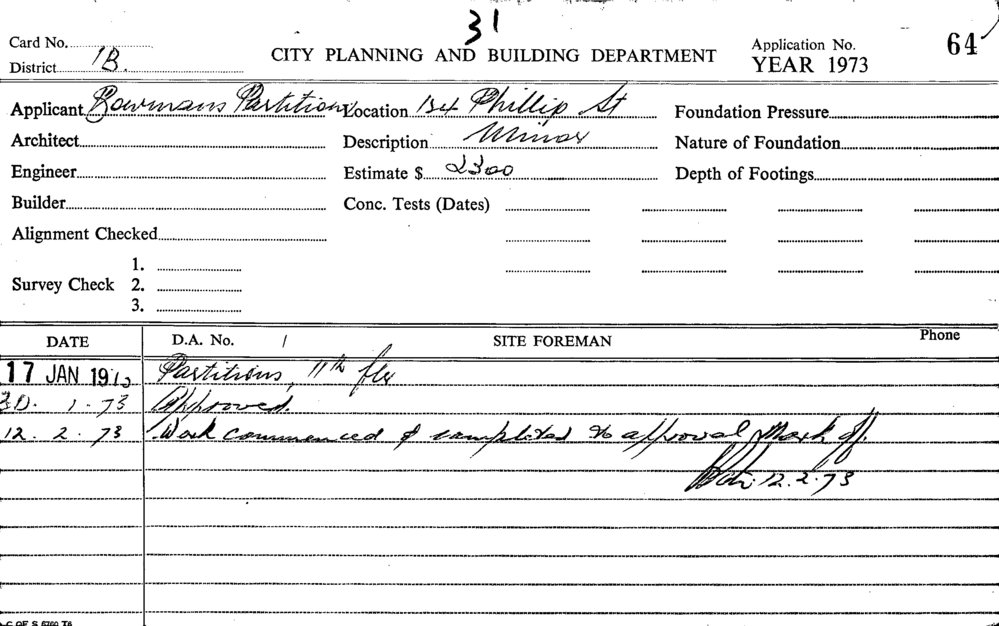 31
Card No.
CITY PLANNING AND BUILDING DEPARTMENT
Application No. 64
District 1B.
YEAR 1973
Applicant Bowmans Partitions Location 134 Phillip St Foundation Pressure
Architect Description Minor Nature of Foundation
Engineer Estimate $ 2300 Depth of Footings
Builder Conc. Tests (Dates)
Alignment Checked
1.
Survey Check 2.
3.
DATE D.A. No. / SITE FOREMAN Phone
17 JAN 1973 Partitions, 11th flr
30. 1. 73 Approved.
12. 2. 73 Work commenced & completed to approval Mark off.
12.2.73
C OF S 5760 T6